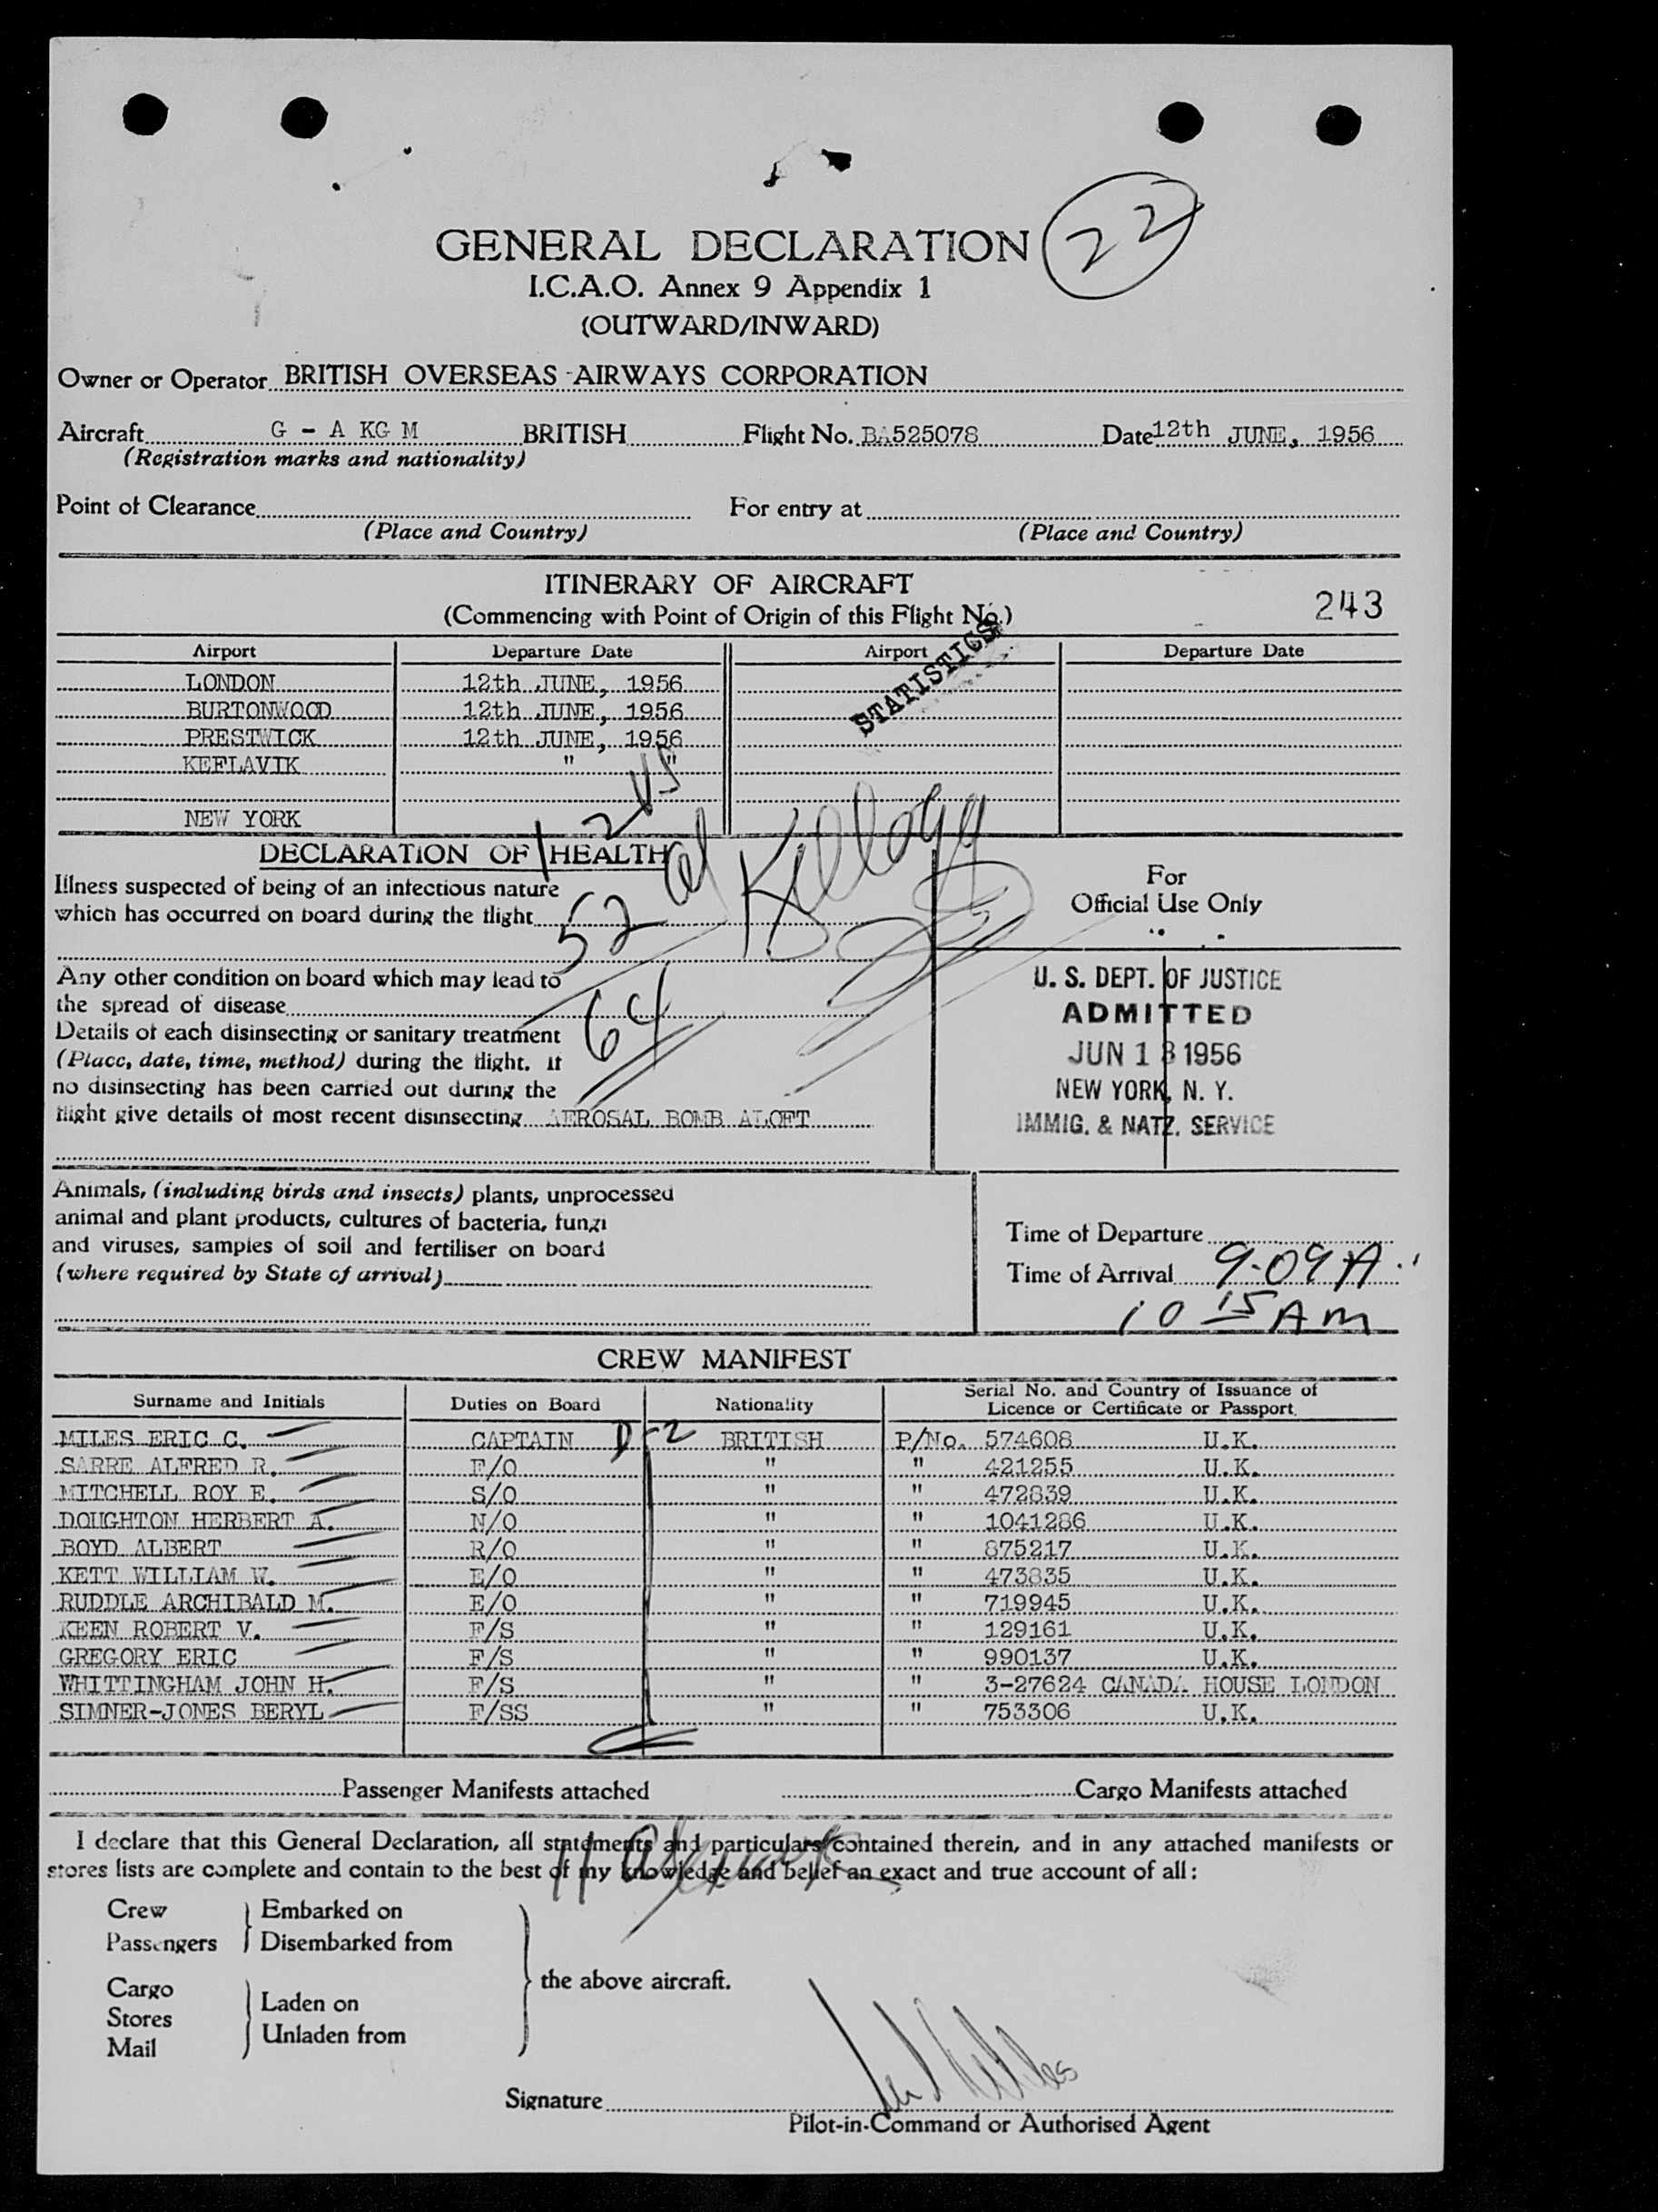 22
GENERAL DECLARATION
I.C.A.O. Annex 9 Appendix 1
(OUTWARD/INWARD)
Owner or Operator BRITISH OVERSEAS AIRWAYS CORPORATION
Aircraft G - A KG M BRITISH Flight No. BA525078 Date 12th JUNE, 1956
(Registration marks and nationality)
Point of Clearance For entry at
(Place and Country) (Place and Country)
ITINERARY OF AIRCRAFT
(Commencing with Point of Origin of this Flight No.) 243
STATISTICS
Airport Departure Date Airport Departure Date
LONDON 12th JUNE, 1956
BURTONWOOD 12th JUNE, 1956
PRESTWICK 12th JUNE, 1956
KEFLAVIK " "
NEW YORK
2 US
DECLARATION OF HEALTH
Kellogg
For
Official Use Only
Illness suspected of being of an infectious nature
which has occurred on board during the flight
52
Any other condition on board which may lead to
the spread of disease
64
Details of each disinsecting or sanitary treatment
(Place, date, time, method) during the flight. If
no disinsecting has been carried out during the
flight give details of most recent disinsecting AEROSAL BOMB ALOFT
U. S. DEPT. OF JUSTICE
ADMITTED
JUN 13 1956
NEW YORK, N. Y.
IMMIG. & NATZ. SERVICE
Animals, (including birds and insects) plants, unprocessed
animal and plant products, cultures of bacteria, fungi
and viruses, samples of soil and fertiliser on board
(where required by State of arrival)
Time of Departure
Time of Arrival 9.09 A
10 15 AM
CREW MANIFEST
Surname and Initials Duties on Board Nationality Serial No. and Country of Issuance of
Licence or Certificate or Passport.
MILES ERIC C. CAPTAIN D-2 BRITISH P/No. 574608 U.K.
SARRE ALFRED R. F/O " " 421255 U.K.
MITCHELL ROY E. S/O " " 472839 U.K.
DOUGHTON HERBERT A. N/O " " 1041286 U.K.
BOYD ALBERT R/O " " 875217 U.K.
KETT WILLIAM W. E/O " " 473835 U.K.
RUDDLE ARCHIBALD M. E/O " " 719945 U.K.
KEEN ROBERT V. F/S " " 129161 U.K.
GREGORY ERIC F/S " " 990137 U.K.
WHITTINGHAM JOHN H. F/S " " 3-27624 CANADA HOUSE LONDON
SIMNER-JONES BERYL F/SS " " 753306 U.K.
Passenger Manifests attached Cargo Manifests attached
I declare that this General Declaration, all statements and particulars contained therein, and in any attached manifests or
stores lists are complete and contain to the best of my knowledge and belief an exact and true account of all:
11
Crew Embarked on
Passengers Disembarked from
the above aircraft.
Cargo
Stores Laden on
Mail Unladen from
Signature
Pilot-in-Command or Authorised Agent